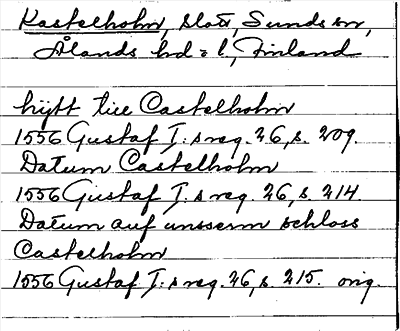 Kastelholm, slott, Sunds sn,
Ålands hd o. l., Finland
hijtt till Castelholm
1556 Gustaf I:s reg. 26, s. 209.
Datum Castelholm
1556 Gustaf I:s reg. 26, s. 214.
Datum auf unsserm schloss
Castelholm
1556 Gustaf I:s reg. 26, s. 215. orig.